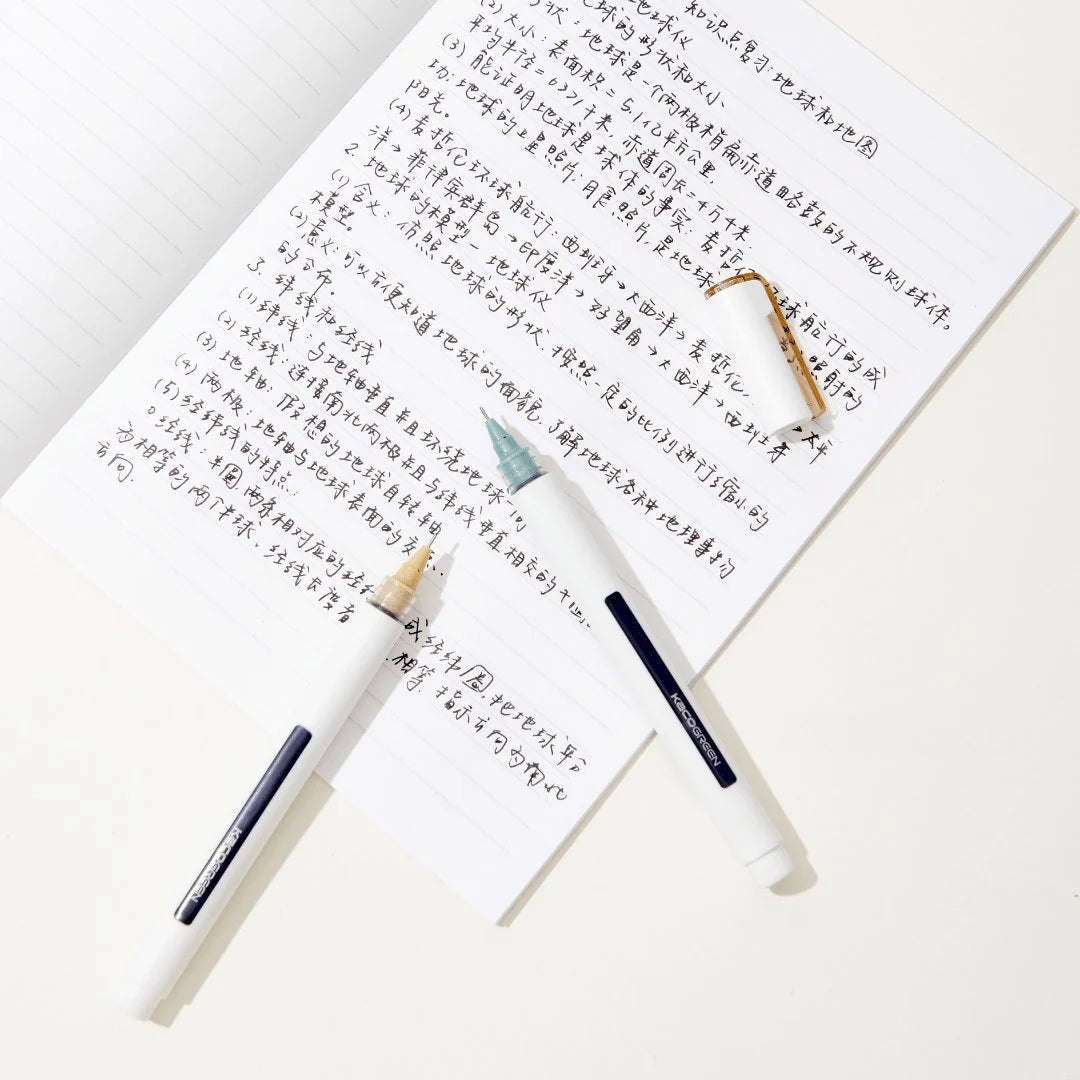 知识点复习:地球和地图
地球仪
地球的形状和大小
形状:地球是一个两极稍扁赤道略鼓的不规则球体。
(2) 大小:表面积=5.1亿平方公里,
平均半径=6371千米,赤道周长=4万千米
(3) 能证明地球是球体的事实:麦哲 球航行的成
功:地球的卫星照片;月食照片,是地球 照射的
阳光。
(4) 麦哲伦环球航行:西班牙→大西洋→麦哲伦 →太平
洋→菲律宾群岛→印度洋→好望角→大西洋→西班牙
2. 地球的模型—地球仪
(1) 含义:仿照地球的形状,按照一定的比例进行缩小的
模型。
(2) 意义:可以方便知道地球的面貌,了解地球各种地理事物
的分布.
3. 纬线和经线
(1) 纬线:与地轴垂直并且环绕地球一
(2) 经线:连接南北两极并且与纬线垂直相交的
(3) 地轴:假想的地球自转轴
(4) 两极:地轴与地球表面的交
(5) 经纬线的特点:
① 经线:半圆 两条相对应的经线 成经纬圈,把地球平分
为相等的两个半球,经线长度 相等.指示方向为南北
方向.
KACOGREEN
KACOGREEN